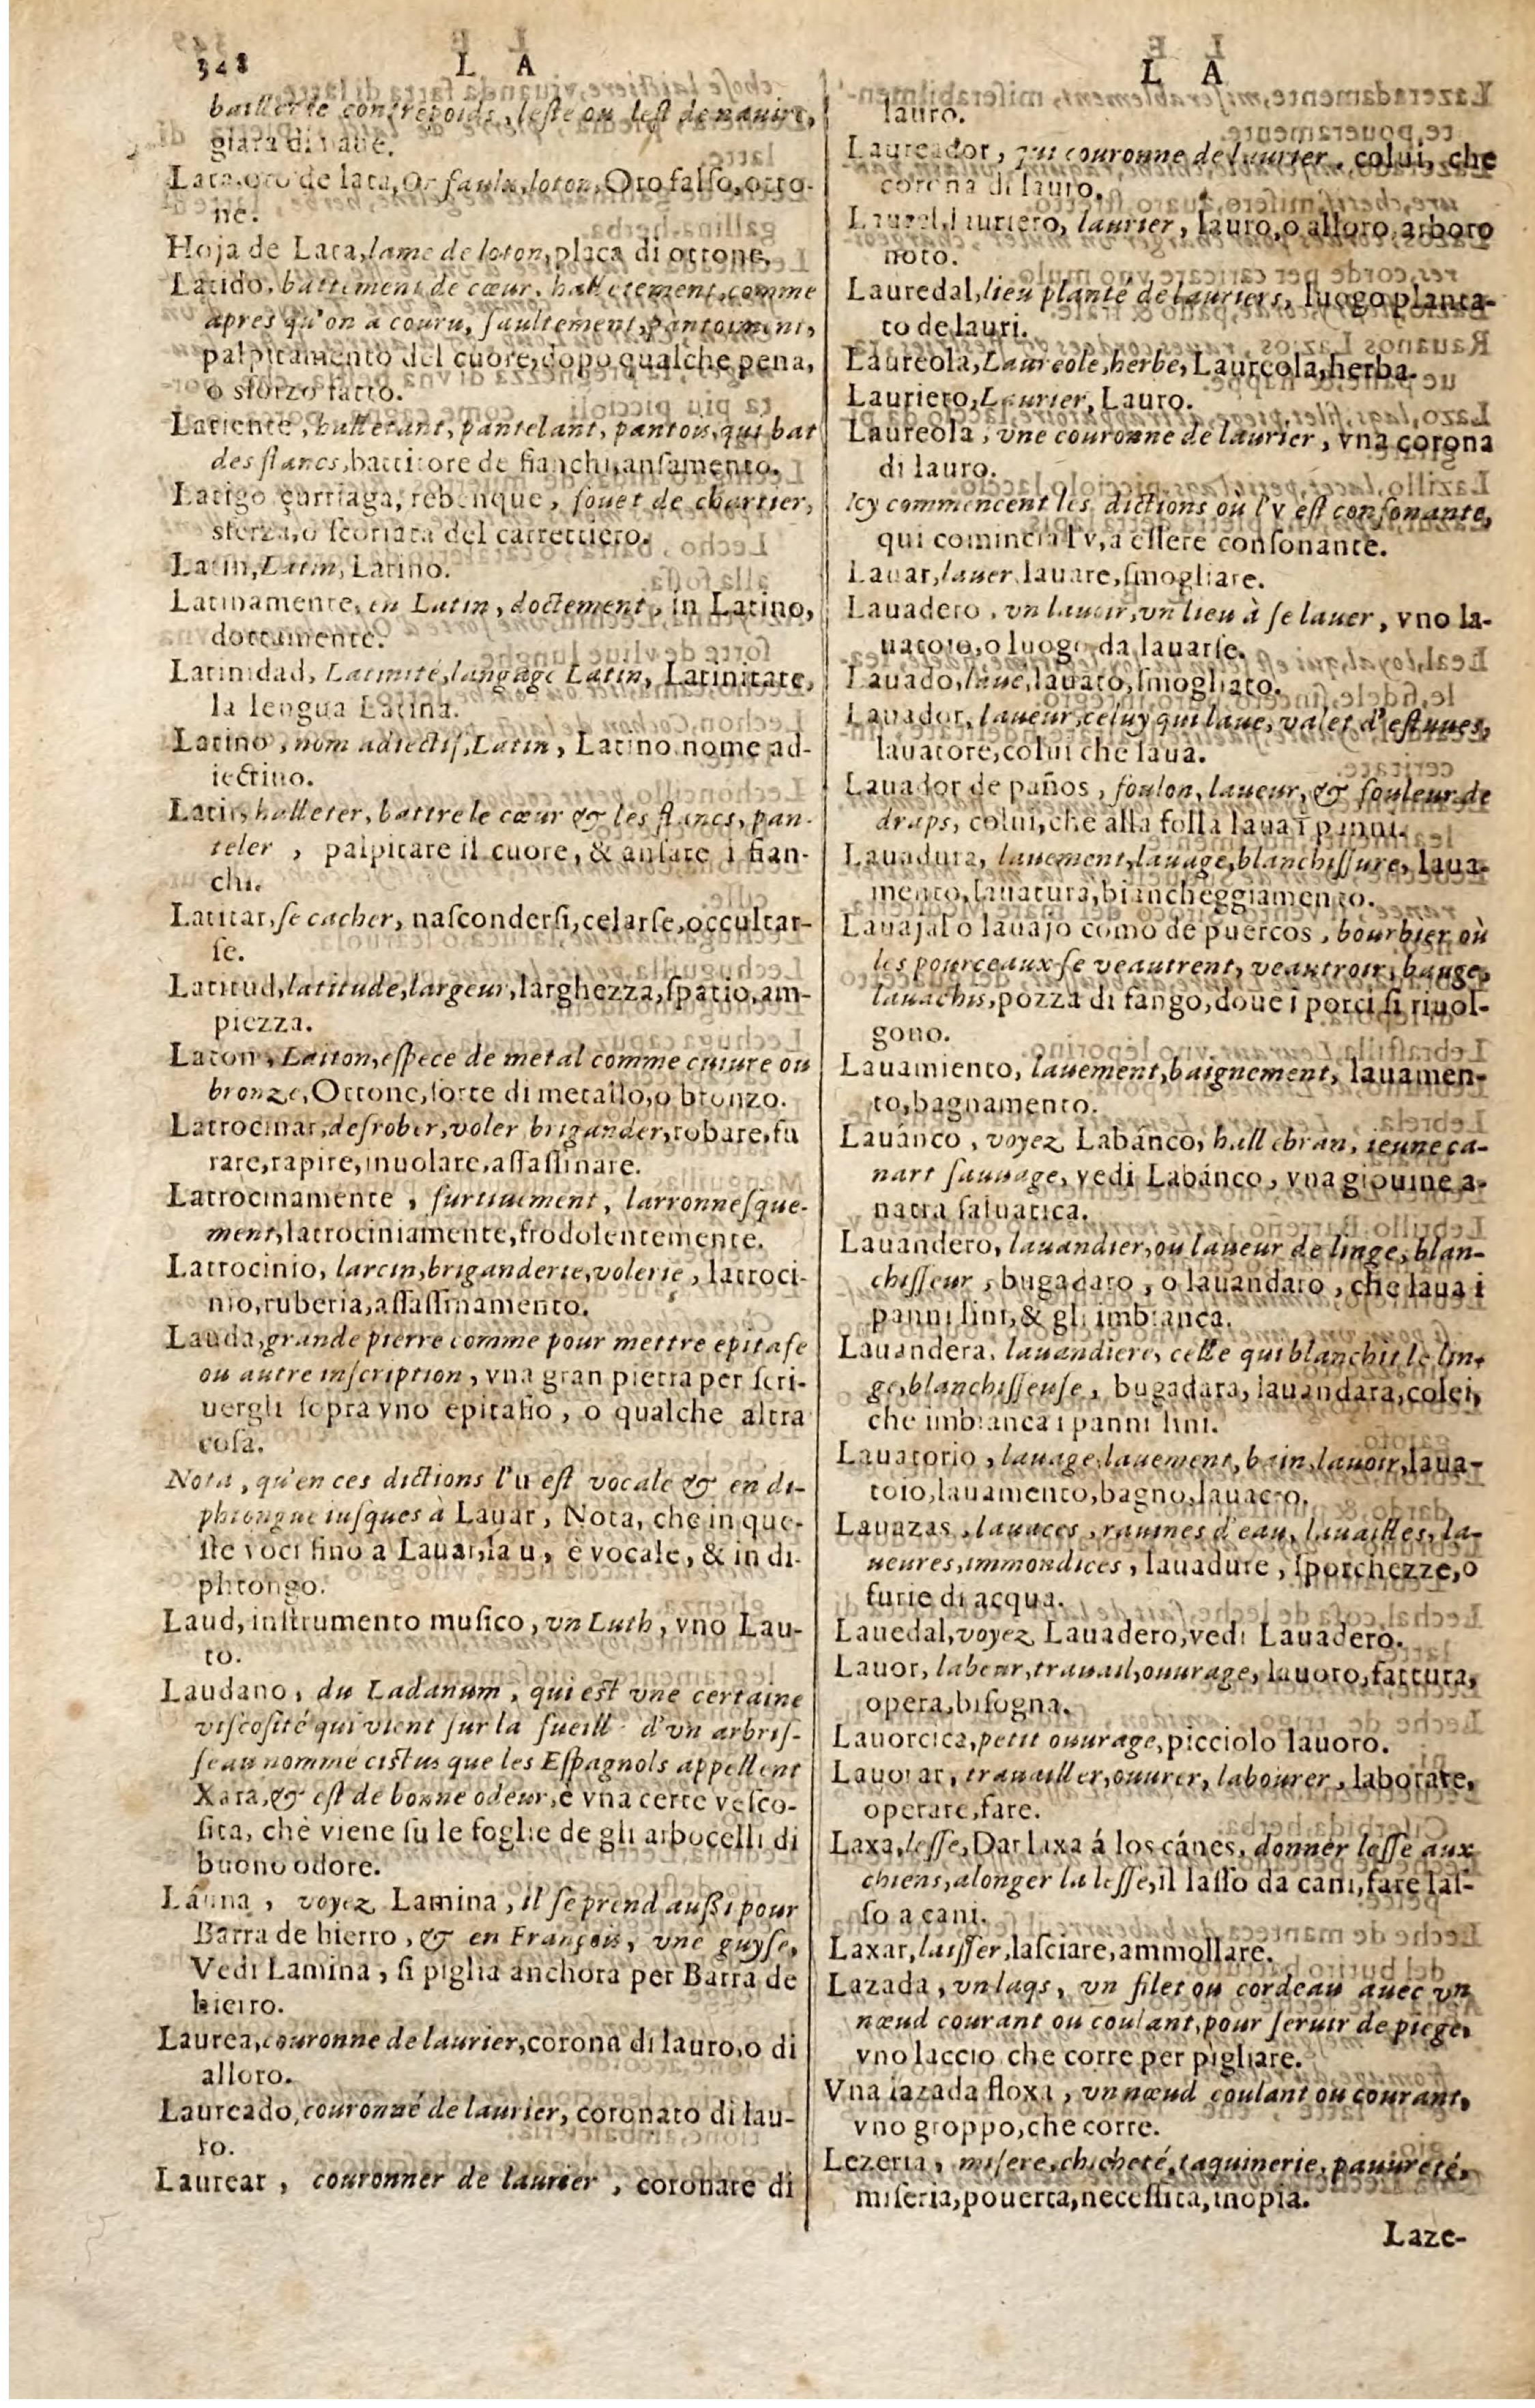 348
L A
baillerie contrepoids, leste ou lest de nauire,
giara di naue.
Lata, oro de lata, Or faulx, loton, Oro falso, otto-
ne.
Hoja de Lata, lame de loton, placa di ottone.
Latido, battement de cœur, halletement, comme
apres qu'on a couru, saultement, pantoiment,
palpitamento del cuore, dopo qualche pena,
o sforzo fatto.
Latiente, halletant, pantelant, pantois, qui bat
des flancs, battitore de fianchi, ansamento.
Latigo çurriaga, rebenque, fouet de chartier,
sferza, o scoriata del carrettiero.
Latin, Latin, Latino.
Latinamente, en Latin, doctement, in Latino,
dottamente.
Latinidad, Latinité, langage Latin, Latinitate,
la lengua Latina.
Latino, nom adiectif, Latin, Latino nome ad-
iectiuo.
Latir, halleter, battre le cœur & les flancs, pan-
teler, palpitare il cuore, & ansare i fian-
chi.
Latitar, se cacher, nascondersi, celarse, occultar-
se.
Latitud, latitude, largeur, larghezza, spatio, am-
piezza.
Laton, Laiton, espece de metal comme cuiure ou
bronze, Ottone, sorte di metallo, o bronzo.
Latrocinar, desrober, voler brigander, robare, fu
rare, rapire, inuolare, assassinare.
Latrocinamente, furtiuement, larronnesque-
ment, latrociniamente, frodolentemente.
Latrocinio, larcin, briganderie, volerie, latroci-
nio, ruberia, assassinamento.
Lauda, grande pierre comme pour mettre epitafe
ou autre inscription, vna gran pietra per scri-
uergli sopra vno epitafio, o qualche altra
cosa.
Nota, qu'en ces dictions l'u est vocale & en di-
phtongue iusques à Lauar, Nota, che in que-
ste voci fino a Lauar, la u, è vocale, & in di-
phtongo.
Laud, instrumento musico, vn Luth, vno Lau-
to.
Laudano, du Ladanum, qui est vne certaine
viscosité qui vient sur la fueille d'vn arbris-
seau nommé cistus que les Espagnols appellent
Xara, & est de bonne odeur, è vna certe vesco-
sita, chè viene su le foglie de gli arbocelli di
buono odore.
Láuna, voyez Lamina, il se prend aussi pour
Barra de hierro, & en François, vne guyse,
Vedi Lamina, si piglia anchora per Barra de
hierro.
Laurea, couronne de laurier, corona di lauro, o di
alloro.
Laureado, couronné de laurier, coronato di lau-
ro.
Laurear, couronner de laurier, coronare di
L A
lauro.
Laureador, qui couronne de laurier, colui, che
corona di lauro.
Laurel, Lauriero, laurier, lauro, o alloro arboro
noto.
Lauredal, lieu planté de lauriers, luogo planta-
to de lauri.
Laureola, Laureole, herbe, Laureola, herba.
Lauriero, Laurier, Lauro.
Laureola, vne couronne de laurier, vna corona
di lauro.
Icy commencent les dictions où l'v est consonante,
qui comincia l'v, a essere consonante.
Lauar, lauer, lauare, smogliare.
Lauadero, vn lauoir, vn lieu à se lauer, vno la-
uatoio, o luogo da lauarse.
Lauado, laué, lauato, smogliato.
Lauador, laueur, celuy qui laue, valet d'estuues,
lauatore, colui che laua.
Lauador de paños, foulon, laueur, & fouleur de
draps, colui, che alla folla laua i panni.
Lauadura, lauement, lauage, blanchissure, laua-
mento, lauatura, biancheggiamento.
Lauajal o lauajo como de puercos, bourbier où
les pourceaux se veautrent, veautroir, bauge,
lauachis, pozza di fango, doue i porci si riuol-
gono.
Lauamiento, lauement, baignement, lauamen-
to, bagnamento.
Lauánco, voyez Labánco, hallebran, ieune ca-
nart sauuage, vedi Labánco, vna giouine a-
natra saluatica.
Lauandero, lauandier, ou laueur de linge, blan-
chisseur, bugadaro, o lauandaro, che laua i
panni lini, & gli imbianca.
Lauandera, lauandiere, celle qui blanchit le lin-
ge, blanchisseuse, bugadara, lauandara, colei,
che imbianca i panni lini.
Lauatorio, lauage, lauement, bain, lauoir, laua-
toio, lauamento, bagno, lauacro.
Lauazas, lauaces, rauines d'eau, lauailles, la-
ueures, immondices, lauadure, sporchezze, o
furie di acqua.
Lauedal, voyez Lauadero, vedi Lauadero.
Lauor, labeur, trauail, ouurage, lauoro, fattura,
opera, bisogna.
Lauorcica, petit ouurage, picciolo lauoro.
Lauorar, trauailler, ouurer, labourer, laborare,
operare, fare.
Laxa, lesse, Dar laxa á los cánes, donner lesse aux
chiens, alonger la lesse, il lasso da cani, fare las-
so a cani.
Laxar, laisser, lasciare, ammollare.
Lazada, vn laqs, vn filet ou cordeau auec vn
nœud courant ou coulant, pour seruir de piege,
vno laccio che corre per pigliare.
Vna lazada floxa, vn nœud coulant ou courant,
vno groppo, che corre.
Lezeria, misere, chicheté, taquinerie, pauureté,
miseria, pouerta, necessita, inopia.
Laze-